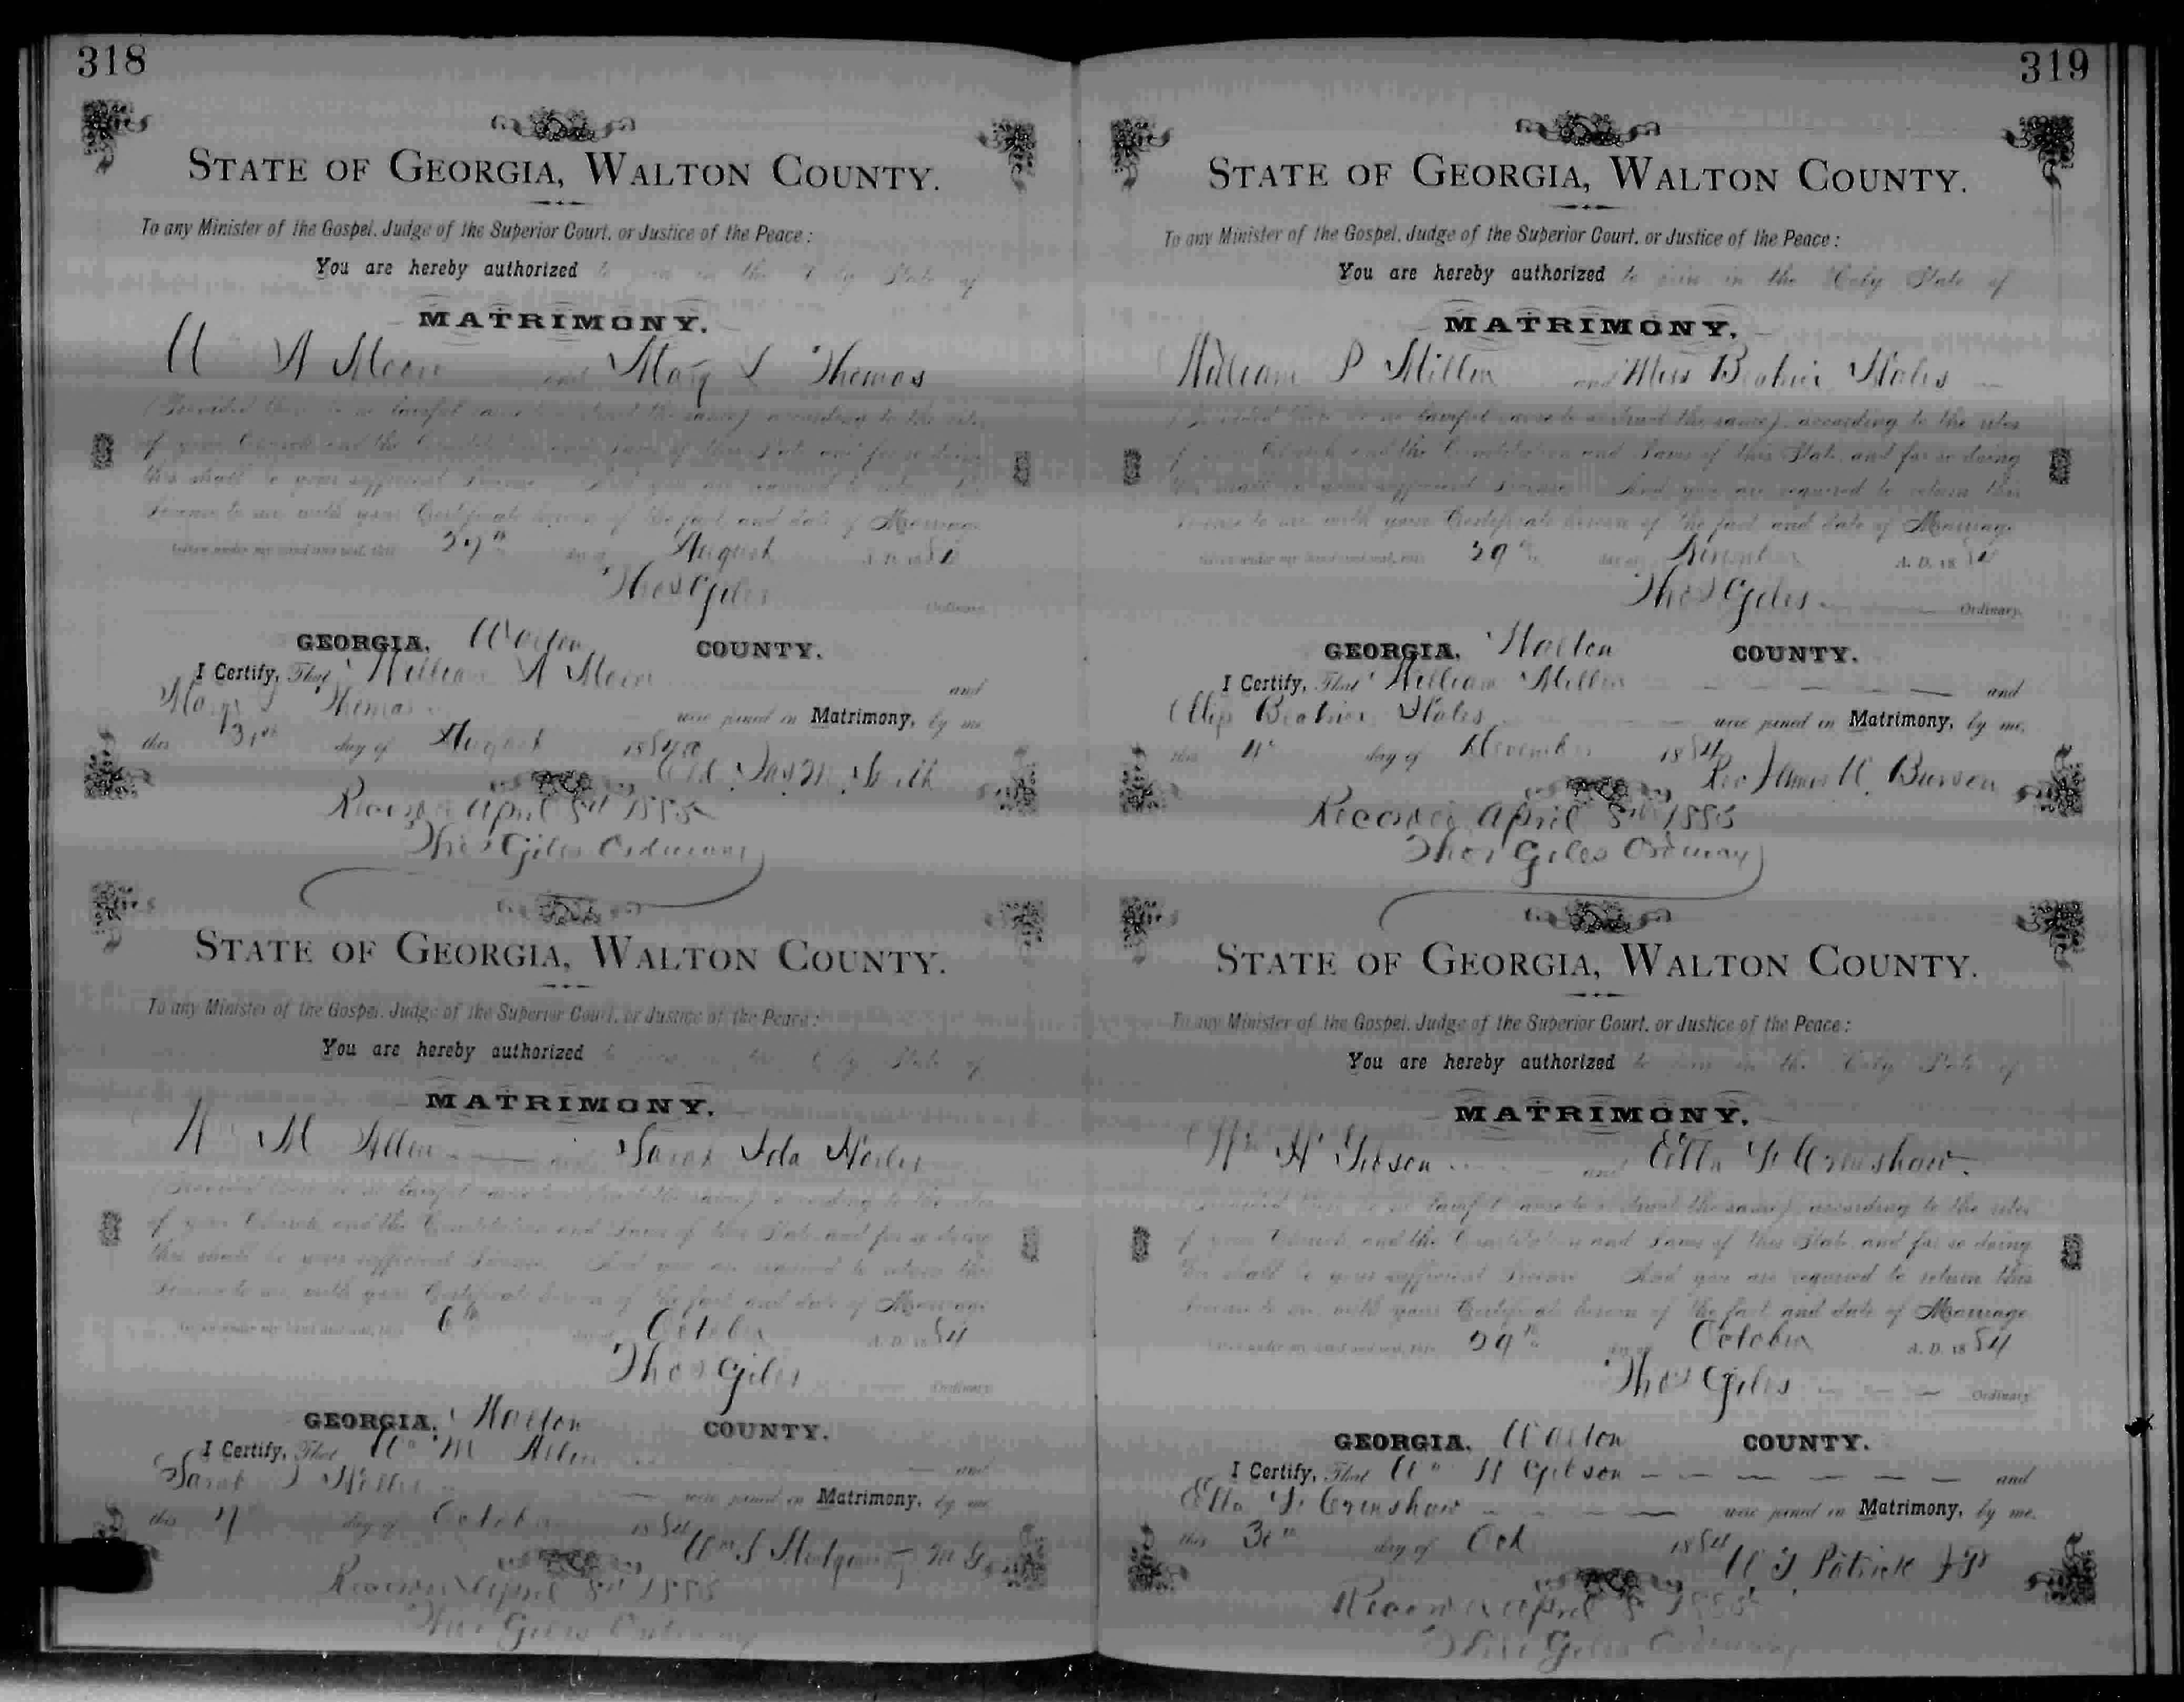 318
STATE OF GEORGIA, WALTON COUNTY.
To any Minister of the Gospel, Judge of the Superior Court, or Justice of the Peace:
You are hereby authorized to join in the Holy State of
MATRIMONY.
A Moore and Mary L Thomas
(Provided there be no lawful cause to obstruct the same) according to the rites
of your Church and the Constitution and Laws of this State and for so doing
this shall be your sufficient License. And you are required to return this
License to me with your Certificate hereon of the fact and date of Marriage
Given under my hand and seal, this day of August A. D. 18
Thos Giles Ordinary
GEORGIA, Walton COUNTY.
I Certify, That William A Moore and
Mary L Thomas were joined in Matrimony, by me
this day of August 1884
Smith
Recorded April 8th 1885
Thos Giles Ordinary
STATE OF GEORGIA, WALTON COUNTY.
To any Minister of the Gospel, Judge of the Superior Court, or Justice of the Peace:
You are hereby authorized to join in the Holy State of
MATRIMONY.
M Allen and Sarah Ida
(Provided there be no lawful cause to obstruct the same) according to the rites
of your Church and the Constitution and Laws of this State and for so doing
this shall be your sufficient License. And you are required to return this
License to me with your Certificate hereon of the fact and date of Marriage
Given under my hand and seal, this 6th day of October A. D. 1884
Thos Giles Ordinary
GEORGIA, Walton COUNTY.
I Certify, That Wm M Allen and
Sarah I were joined in Matrimony, by me
this day of October 1884
Wm S M G
Recorded April 8th 1885
Thos Giles Ordinary
319
STATE OF GEORGIA, WALTON COUNTY.
To any Minister of the Gospel, Judge of the Superior Court, or Justice of the Peace:
You are hereby authorized to join in the Holy State of
MATRIMONY.
William P Miller and Miss Beatrice
(Provided there be no lawful cause to obstruct the same) according to the rites
of your Church and the Constitution and Laws of this State and for so doing
this shall be your sufficient License. And you are required to return this
License to me with your Certificate hereon of the fact and date of Marriage
Given under my hand and seal, this 29th day of A. D. 18
Thos Giles Ordinary
GEORGIA, Walton COUNTY.
I Certify, That William Miller and
Miss Beatrice were joined in Matrimony, by me,
this day of November 1884
Rev James
Recorded April 8th 1885
Thos Giles Ordinary
STATE OF GEORGIA, WALTON COUNTY.
To any Minister of the Gospel, Judge of the Superior Court, or Justice of the Peace:
You are hereby authorized to join in the Holy State of
MATRIMONY.
Wm H Gibson and Ella F Crenshaw
(Provided there be no lawful cause to obstruct the same) according to the rites
of your Church and the Constitution and Laws of this State and for so doing
this shall be your sufficient License. And you are required to return this
License to me with your Certificate hereon of the fact and date of Marriage
Given under my hand and seal, this 29th day of October A. D. 1884
Thos Giles Ordinary
GEORGIA, Walton COUNTY.
I Certify, That Wm H Gibson and
Ella F Crenshaw were joined in Matrimony, by me.
this 30th day of Oct 1884
Patrick J P
Recorded April 8 1885
Thos Giles Ordinary